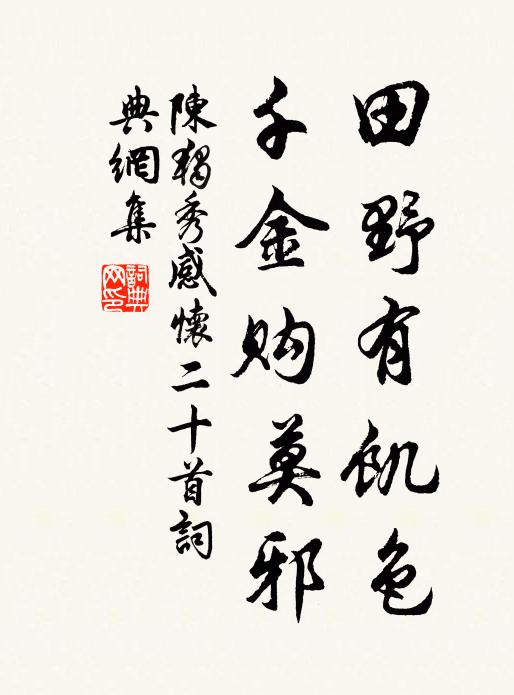 田野有飢色
千金购莫邪
陳獨秀感懷二十首詞
典網集
詞典網印